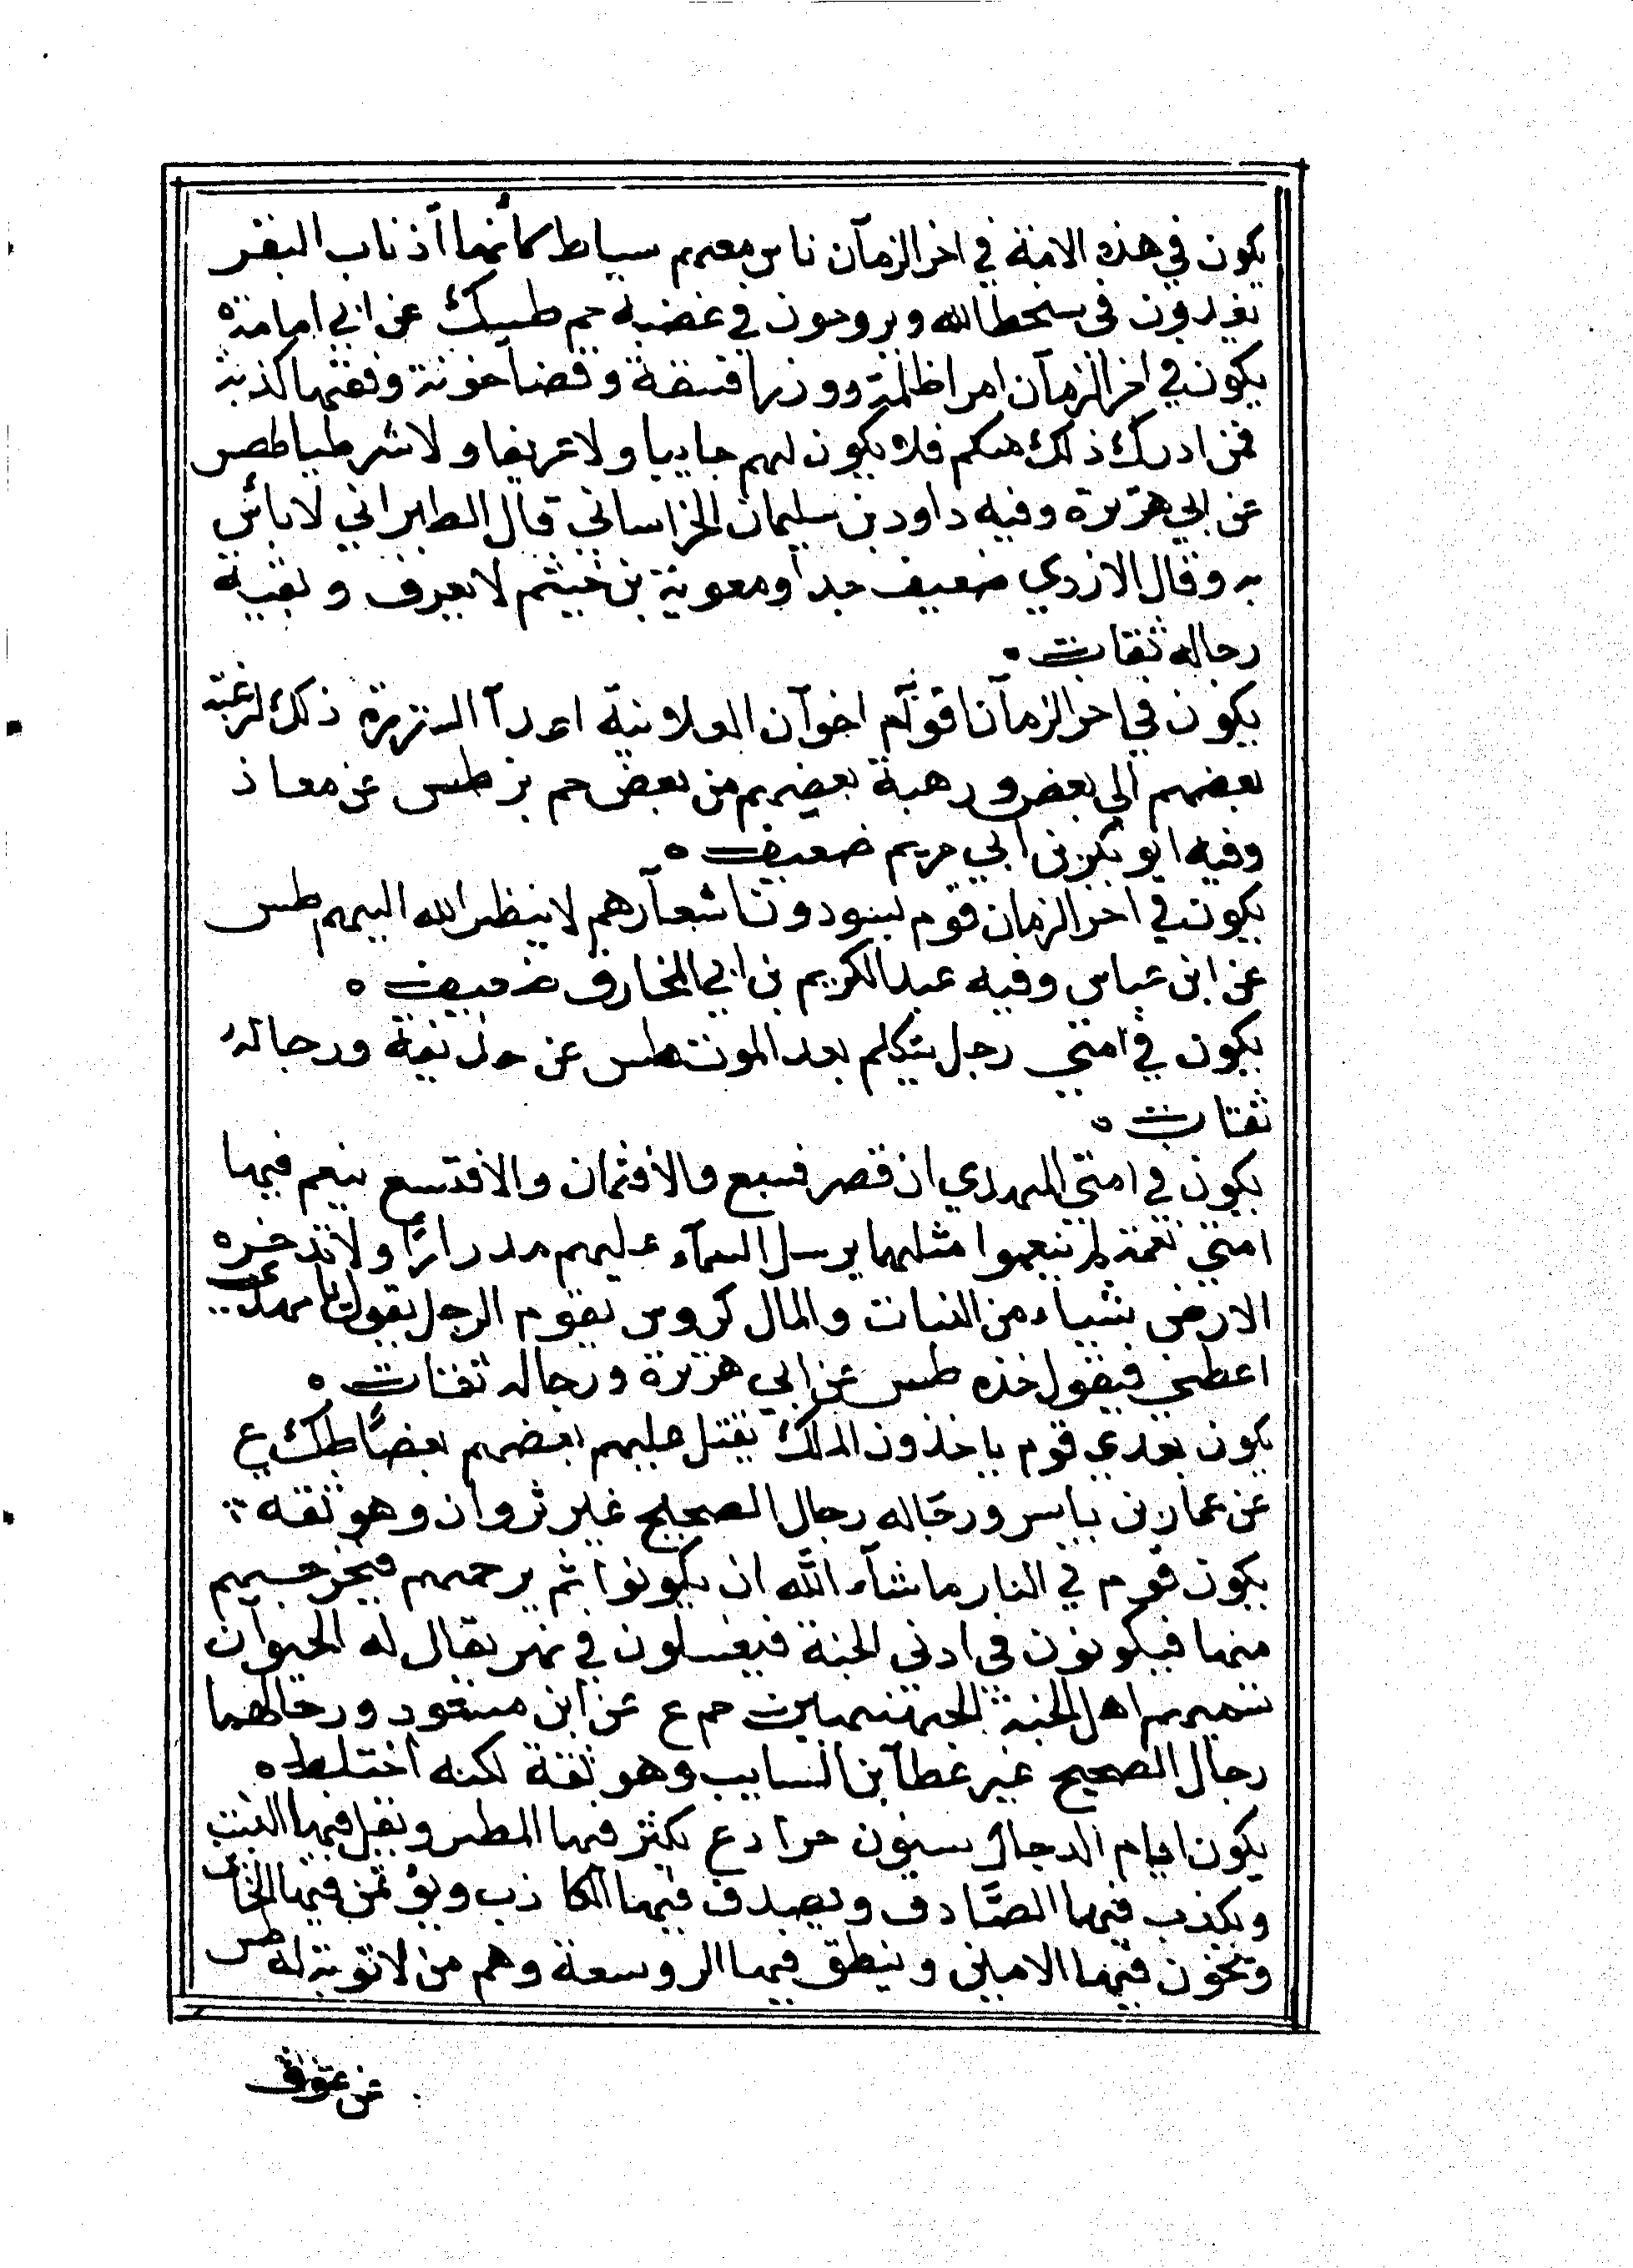 يكون في هذه الامة في اخر الزمآن ناس معهم سياط كأنها آذناب البقر
يغدون في سخط الله ويروحون في غضبه حم طب ك عن ابي امامة ه
يكون في اخر الزمآن امرا ظلمة ووزرا فسقة وقضآ خونة وفقها كذبة
فمن ادرك ذلك منكم فلا يكون لهم جابيا ولا عريفا ولا شرطيا طص
عن ابي هريرة وفيه داود بن سليمان الخراساني قال الطبراني لا بأس
به وقال الازدي ضعيف جدا ومعوية بن خيثم لا يعرف وبقية
رجاله ثقات ه
يكون في اخر الزمآن اقوآم اخوآن العلانية اعدآ السريرة ذلك لرغبة
بعضهم الي بعض ورهبة بعضهم من بعض حم بز طس عن معاذ
وفيه ابو بكر بن ابي مريم ضعيف ه
يكون في اخر الزمان قوم يسودون اشعآرهم لا ينظر الله اليهم طس
عن ابن عباس وفيه عبد الكريم بن ابي المخارق ضعيف ه
يكون في امتي رجل يتكلم بعد الموت طس عن حذيفة ورجاله
ثقات ه
يكون في امتي المهدي ان قصر فسبع والا فثمان والا فتسع ينعم فيها
امتي نعمة لم ينعموا مثلها يرسل السمآء عليهم مدرارًا ولا تدخره
الارض بشياء من النبات والمال كروس يقوم الرجل يقول يا مهدي
اعطني فيقول خذه طس عن ابي هريرة ورجاله ثقات ه
يكون بعدي قوم ياخذون الملك يقتل عليهم بعضهم بعضًا طك ع
عن عمار بن ياسر ورجاله رجال الصحيح غير ثروان وهو ثقه
يكون قوم في النار ما شآء الله ان يكونوا ثم يرحمهم فيخرجهم
منها فيكونون في ادني الجنة فيغسلون في نهر يقال له الحيوآن
تسميهم اهل الجنة الجهنميين حم ع عن ابن مسعود ورجالهما
رجال الصحيح غير عطآ بن السايب وهو ثقة لكنه اختلط ه
يكون امام الدجال سنون خوادع يكثر فيها المطر ويقل فيها النبت
ويكذب فيها الصَّادق ويصدق فيها الكاذب ويؤتمن فيها الخائن
ويخون فيها الامين وينطق فيها الروسعة وهم من لا توبة له طس
عن عوف